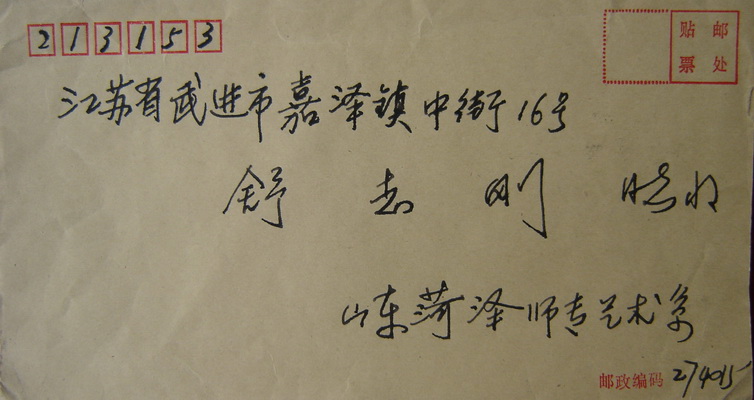 213153
贴邮
票处
江苏省武进市嘉泽镇中街16号
舒志刚
山东菏泽师专艺术系
邮政编码 274015